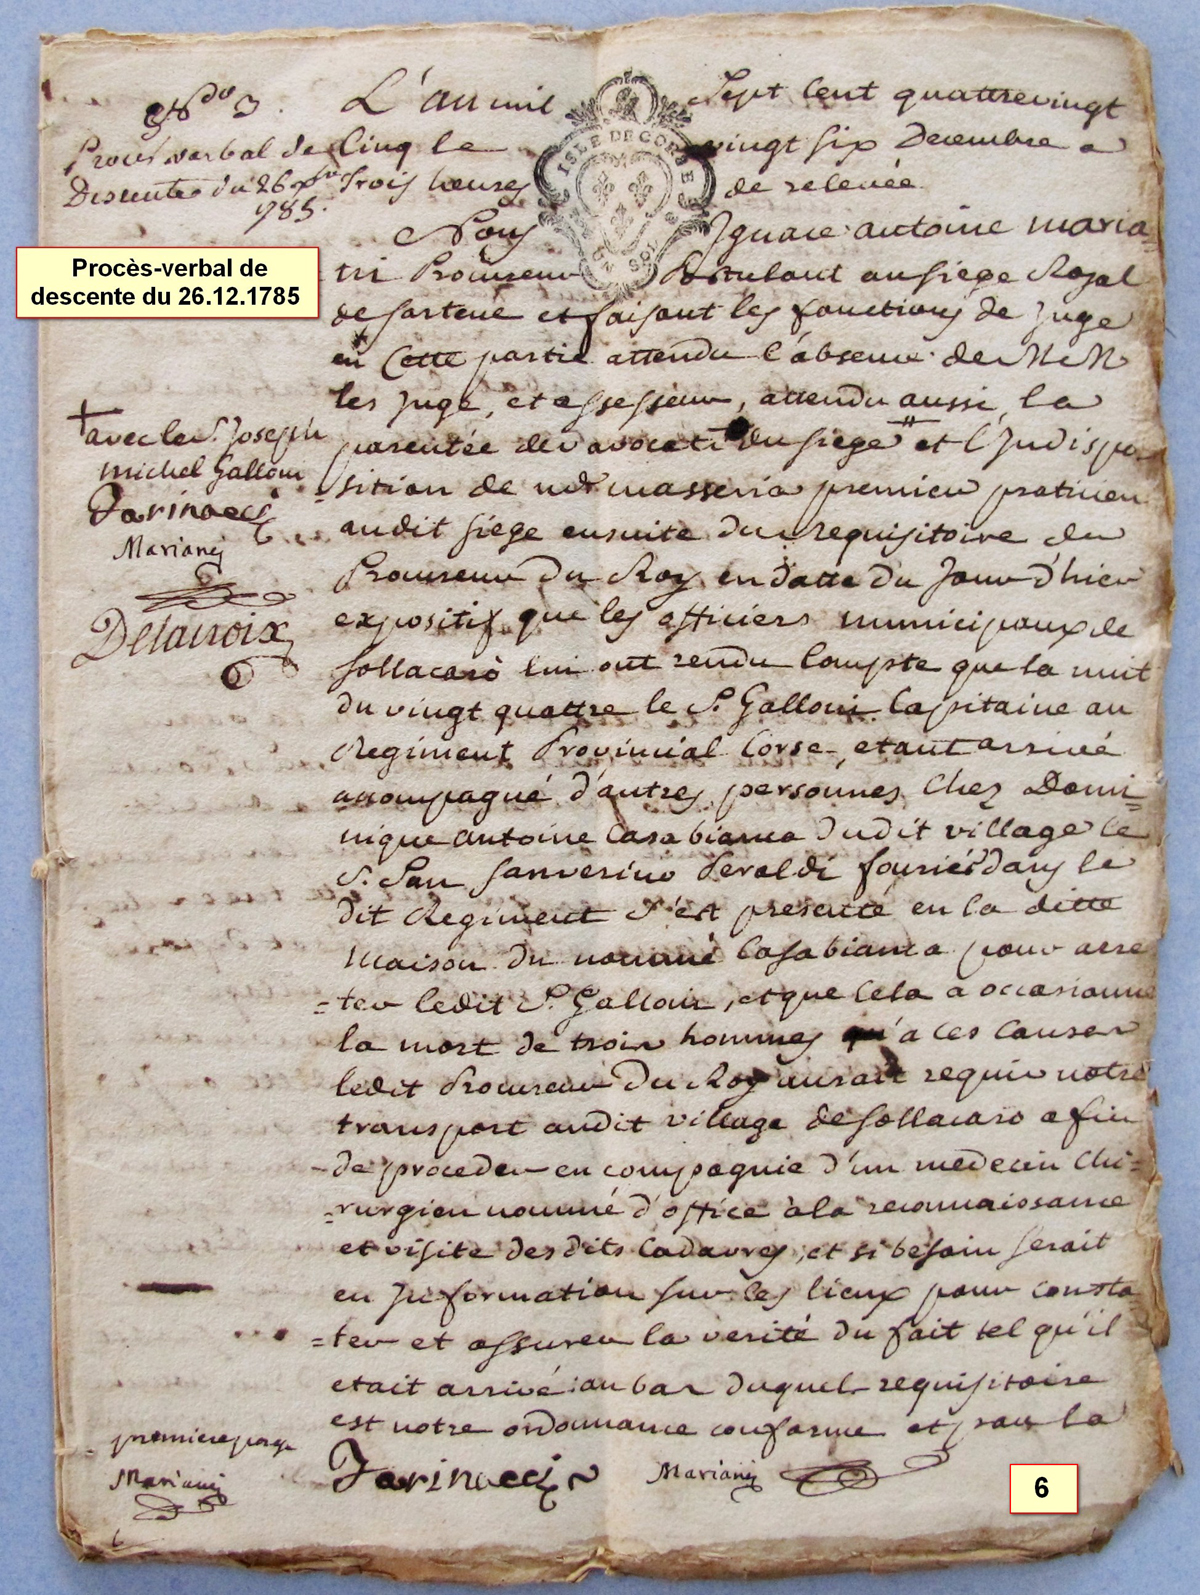 N.do 3.
Procés verbal de
Descente du 26 Xbre
1785.
Procès-verbal de
descente du 26.12.1785
L'an mil Sept Cent quattrevingt
Cinq le vingt six Decembre a
Trois heures de relevée
ISLE DE CORSE
UN SOL
Nous Ignace antoine maria
tri Procureur Postulant au siege Royal
de sartene et faisant les fonctions de Juge
en Cette partie attendu l'absence de M M
les juge, et assesseur, attendu aussi, la
parentée des avocats du siege et l'Judispo
=sition de me masseria premier praticien
audit siege ensuite du requisitoire du
Procureur du Roy en datte du Jour d'hier
expositif que les officiers municipaux de
sollacarò lui ont rendu Compte que la nuit
du vingt quattre le S. Galloni Capitaine au
Regiment Provincial Corse, etant arrivé
accompagné d'autres personnes Chez Domi=
nique antoine Casabianca dudit village le
S. San Sanverino Peraldi fourier dans le
dit Regiment s'est presenté en la ditte
maison du nommé Casabianca pour arre
=ter ledit S. Galloni, et que Cela a occasionné
la mort de trois hommes qu'a ces Causes
ledit Procureur Du Roy aurait requis notre
transport audit village de sollacaro afin
-de proceder en compagnie d'un medecin Chi=
=rurgien nommé d'office à la reconnaissance
et visite des dits Cadavres, et si besoin serait
en Jnformation sur les lieux pour consta=
=ter et assurer la verité du fait tel qu'il
etait arrivé: au bas duquel requisitoire
est notre ordonnance conforme et par la
+
avec le S. Joseph
michel Galloni
Farinacci
Mariani
Delacroix
premiere page
Mariani
Farinacci
Mariani
6